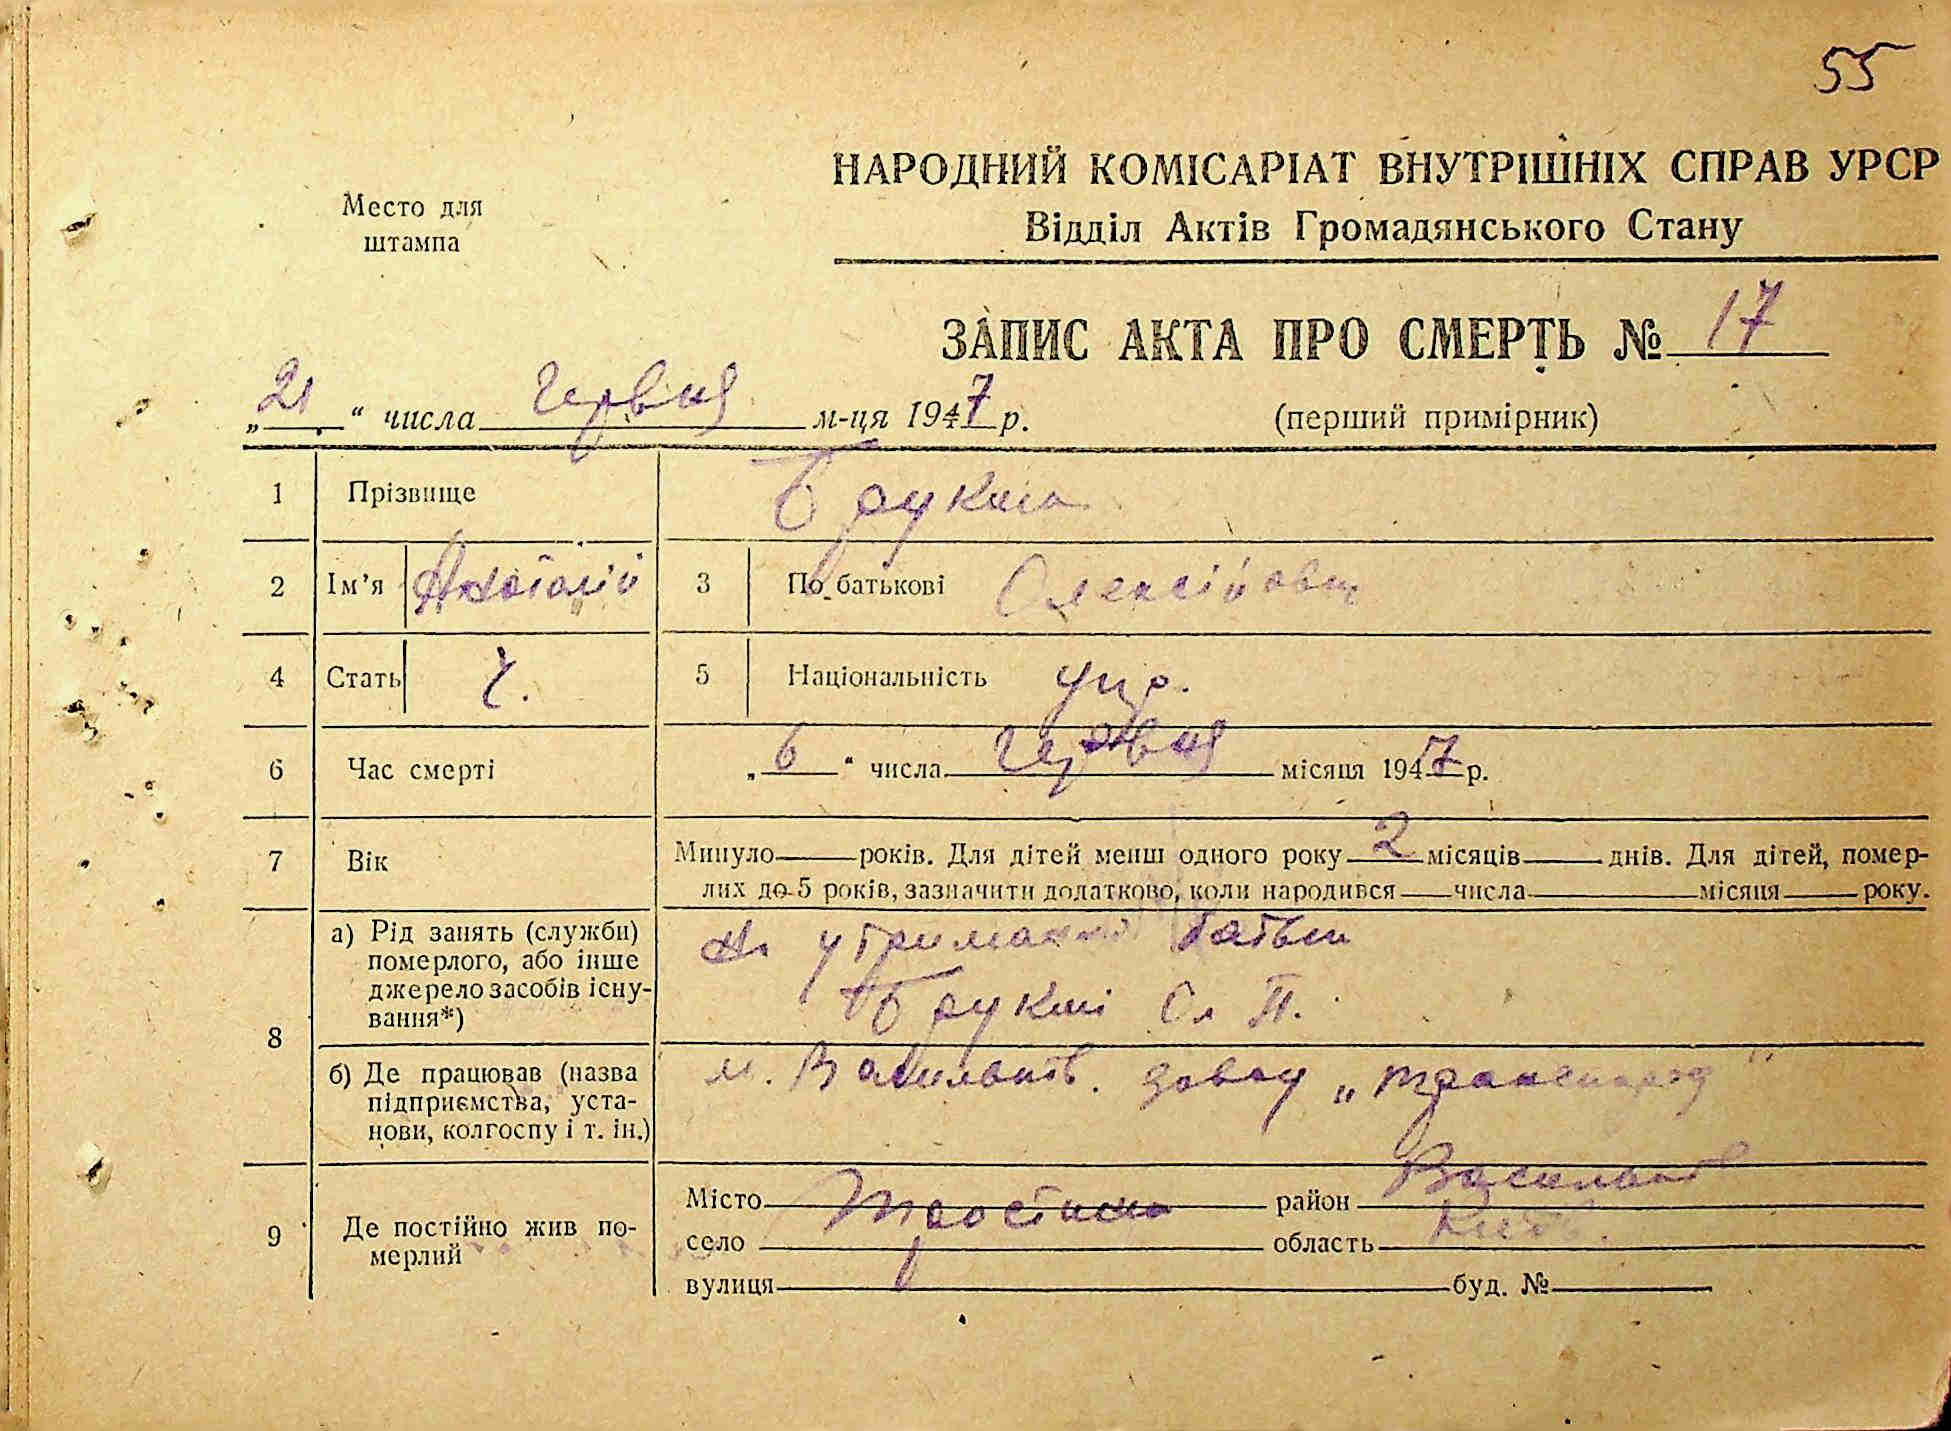 55
НАРОДНИЙ КОМІСАРІАТ ВНУТРІШНІХ СПРАВ УРСР
Відділ Актів Громадянського Стану
Место для
штампа
ЗАПИС АКТА ПРО СМЕРТЬ № 17
„21“ числа червня м-ця 1947 р.
(перший примірник)
1 Прізвище Брукша
2 Ім’я Анатолій 3 По батькові Олексійович
4 Стать ч. 5 Національність укр.
6 Час смерті „6“ числа червня місяця 1947 р.
7 Вік Минуло року років. Для дітей менш одного року 2 місяців днів. Для дітей, помер-
лих до 5 років, зазначити додатково, коли народився числа місяця року.
8 а) Рід занять (служби) померлого, або інше джерело засобів існу-вання*) На утриманні батьки
Брукші Ол П.
б) Де працював (назва підприємства, уста-нови, колгоспу і т. ін.) м. Васильків. завод „Транссигнал”
9 Де постійно жив по-мерлий Місто район Васильків
село Тростинка область Київ.
вулиця буд. №